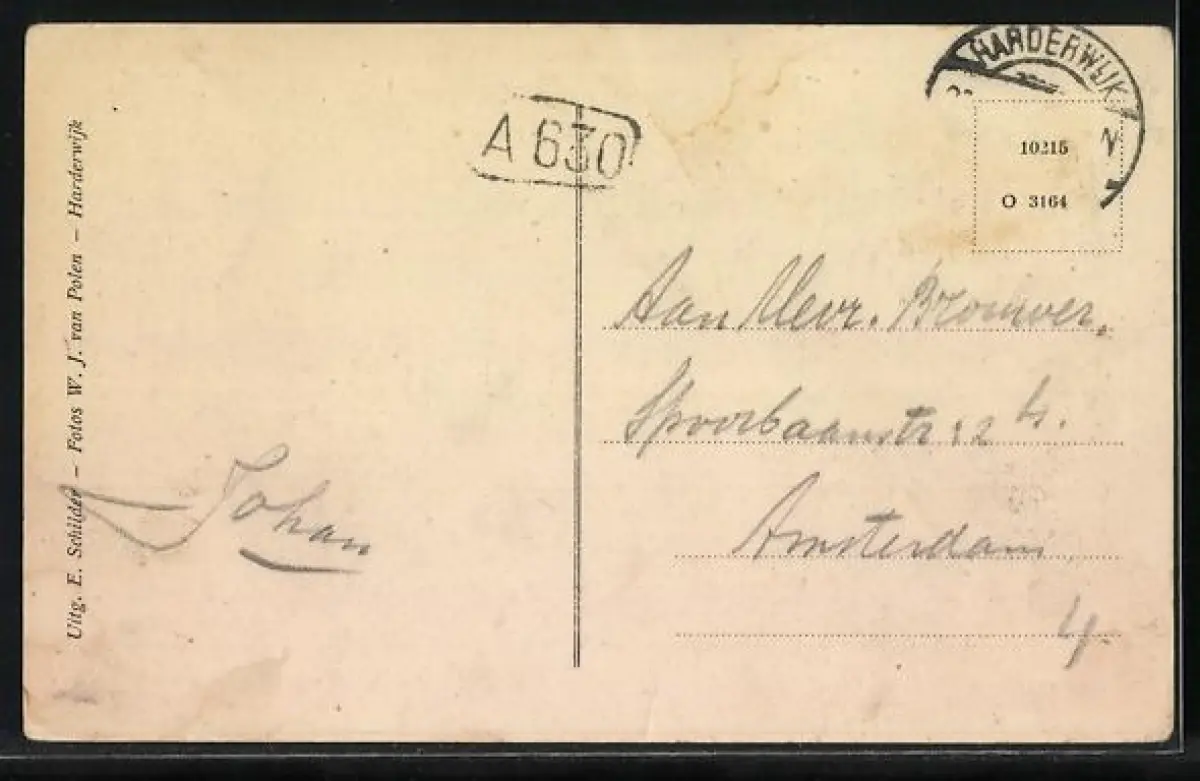 Uitg. E. Schilder – Fotos W. J. van Polen – Harderwijk
A 630
HARDERWIJK
10215
O 3164
Aan Mevr. Brouwer.
Spoorbaanstr 12 4.
Amsterdam
4.
Johan